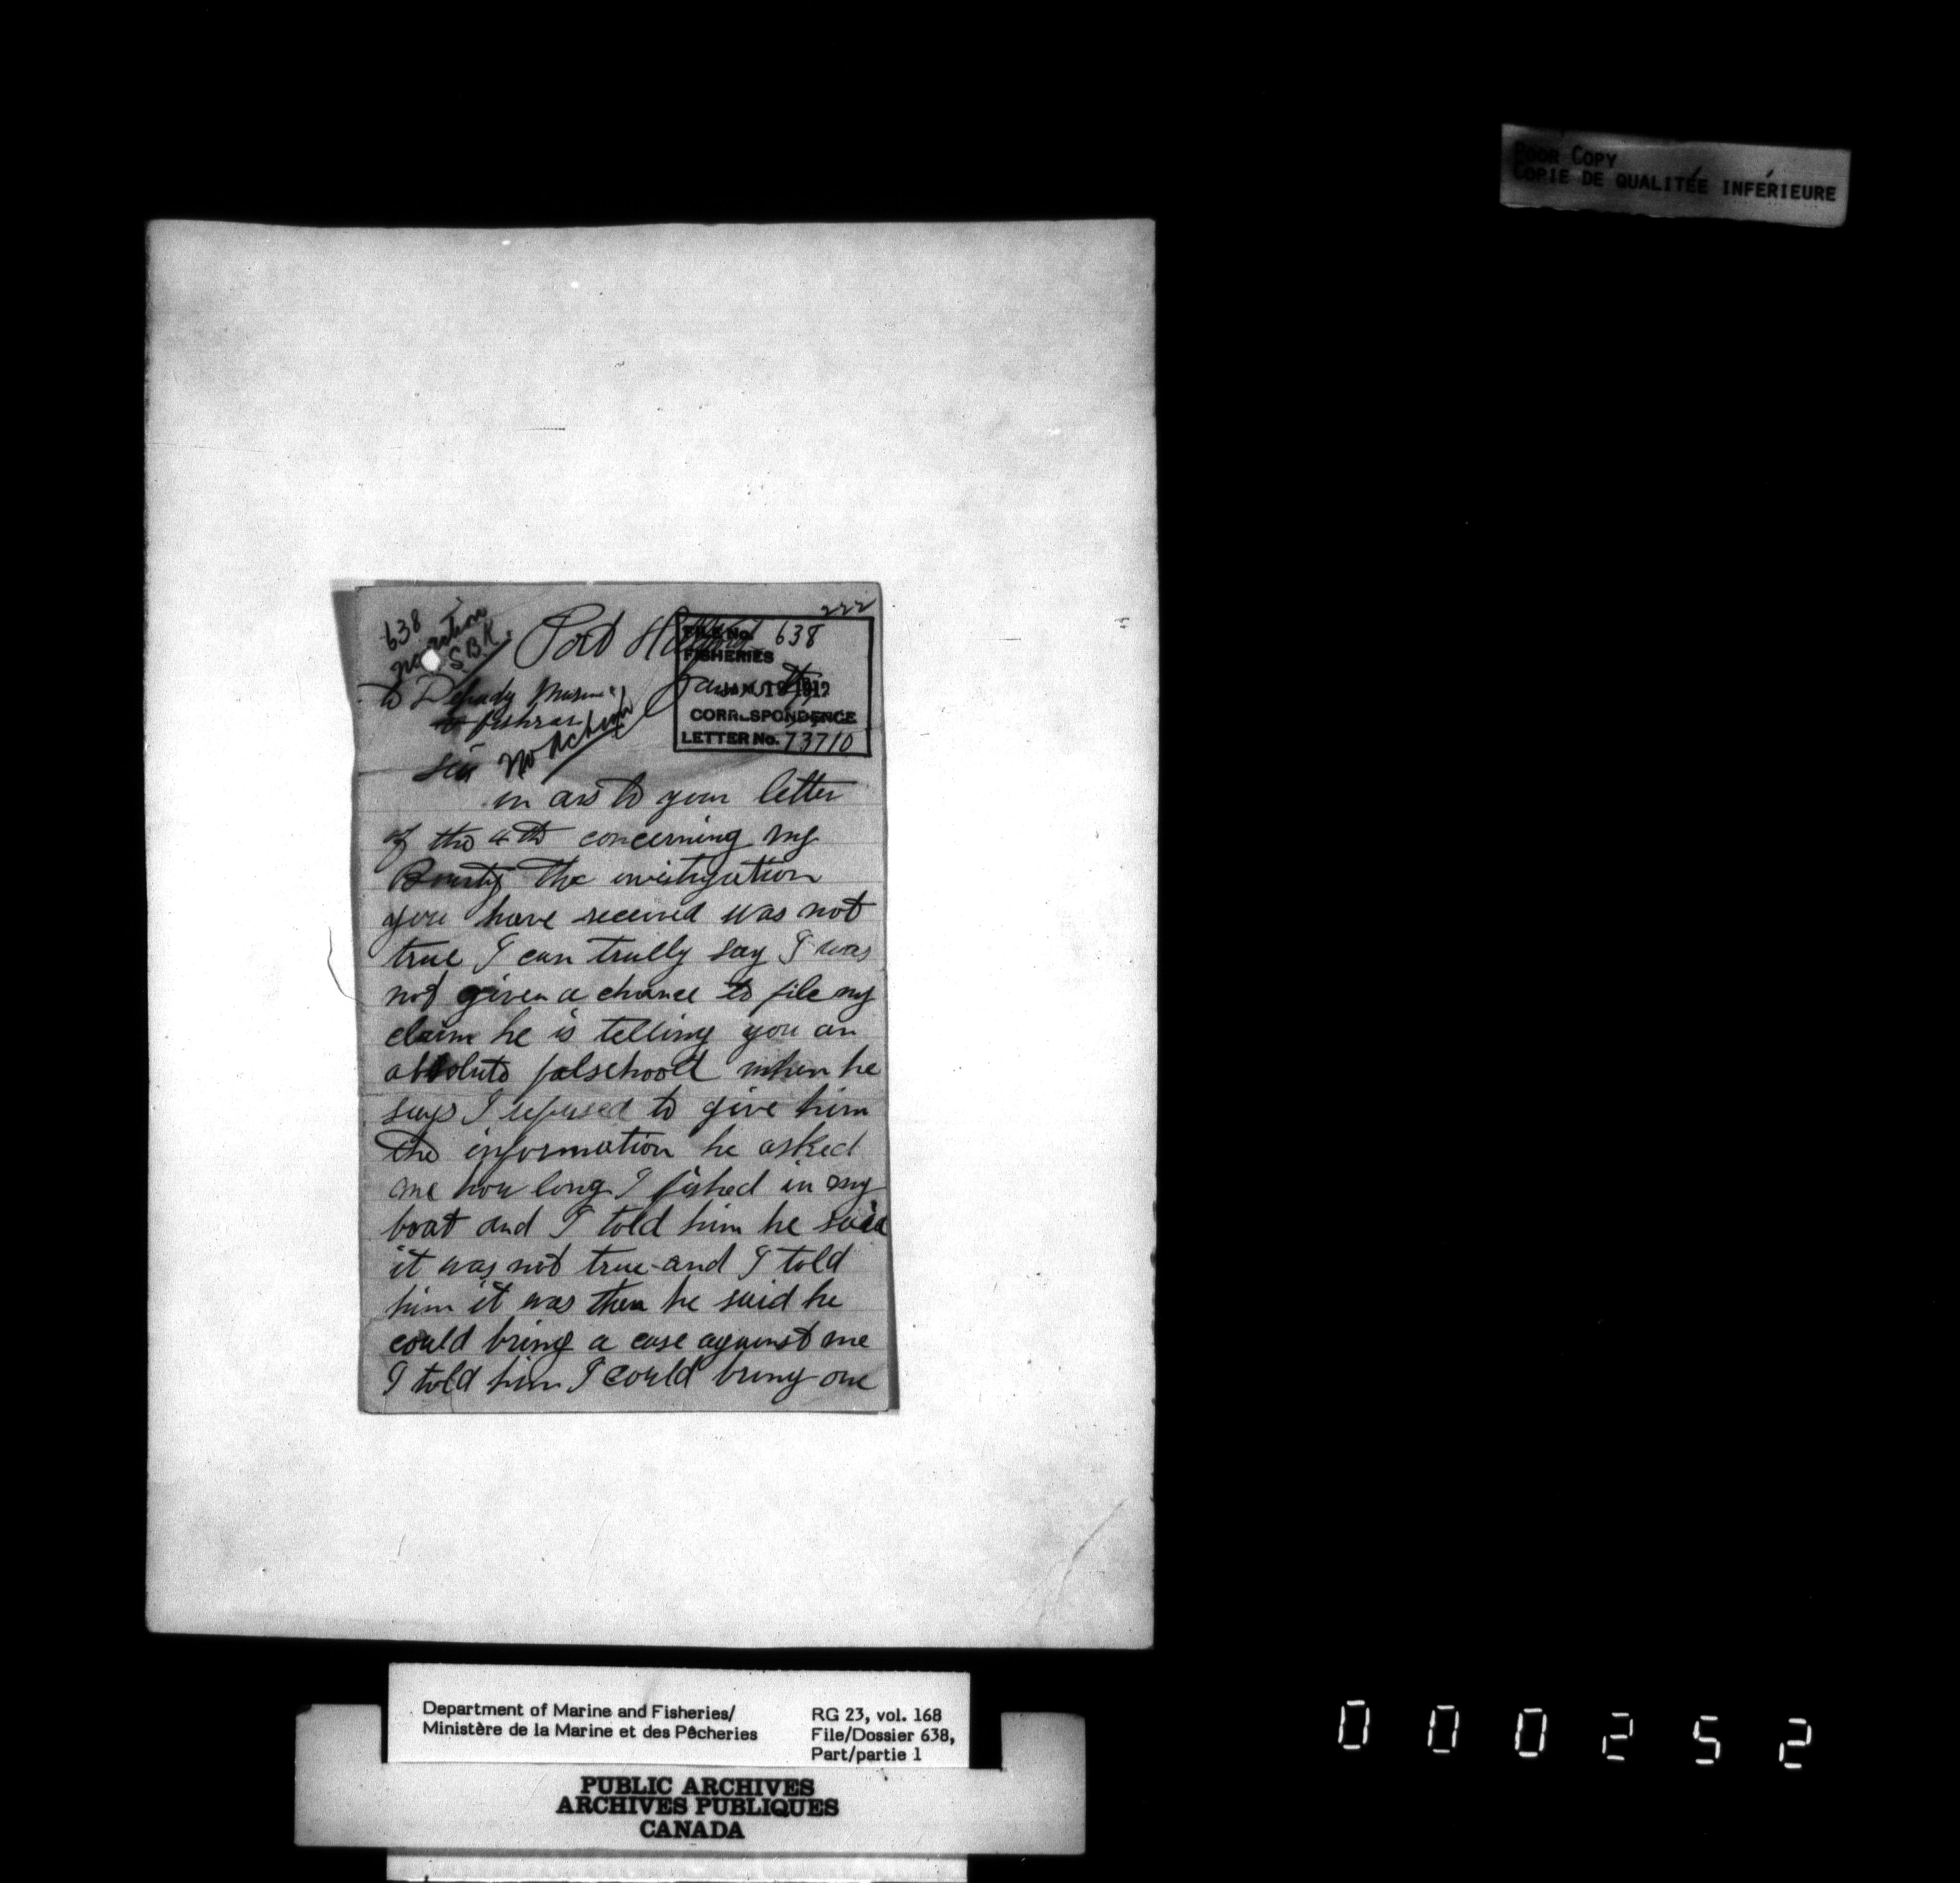 POOR COPY
COPIE DE QUALITÉE INFÉRIEURE
222
638
no action
S.B.K.
Port
FILE No. 638
FISHERIES
JAN 12 1912
CORRESPONDENCE
LETTER No. 73710
to Deputy
fishras
Sir
No Action
in ans to your letter
of the 4th concerning my
Bounty The invistigation
you have received was not
true I can trully say I was
not given a chance to file my
claim he is telling you an
absolute falsehood when he
says I refused to give him
the information he asked
me how long I fished in my
boat and I told him he said
it was not true and I told
him it was then he said he
could bring a case against me
I told him I could bring one
Department of Marine and Fisheries/
Ministère de la Marine et des Pêcheries
RG 23, vol. 168
File/Dossier 638,
Part/partie 1
PUBLIC ARCHIVES
ARCHIVES PUBLIQUES
CANADA
000252